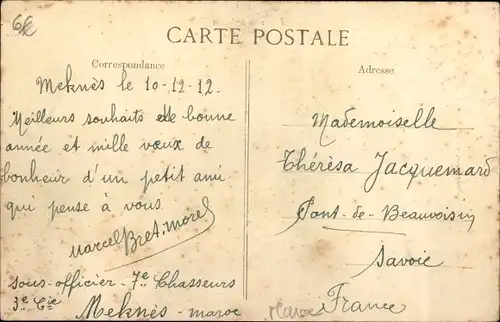 6€
CARTE POSTALE
Correspondance
Meknès le 10-12-12.
Meilleurs souhaits de bonne
année et mille vœux de
bonheur d'un petit ami
qui pense à vous
Marcel Bret-Morel
sous-officier - 7e Chasseurs
3e Cie
Meknès - maroc
Adresse
Mademoiselle
Thérèsa Jacquemard
Pont-de-Beauvoisin
Savoie
France
Maroc